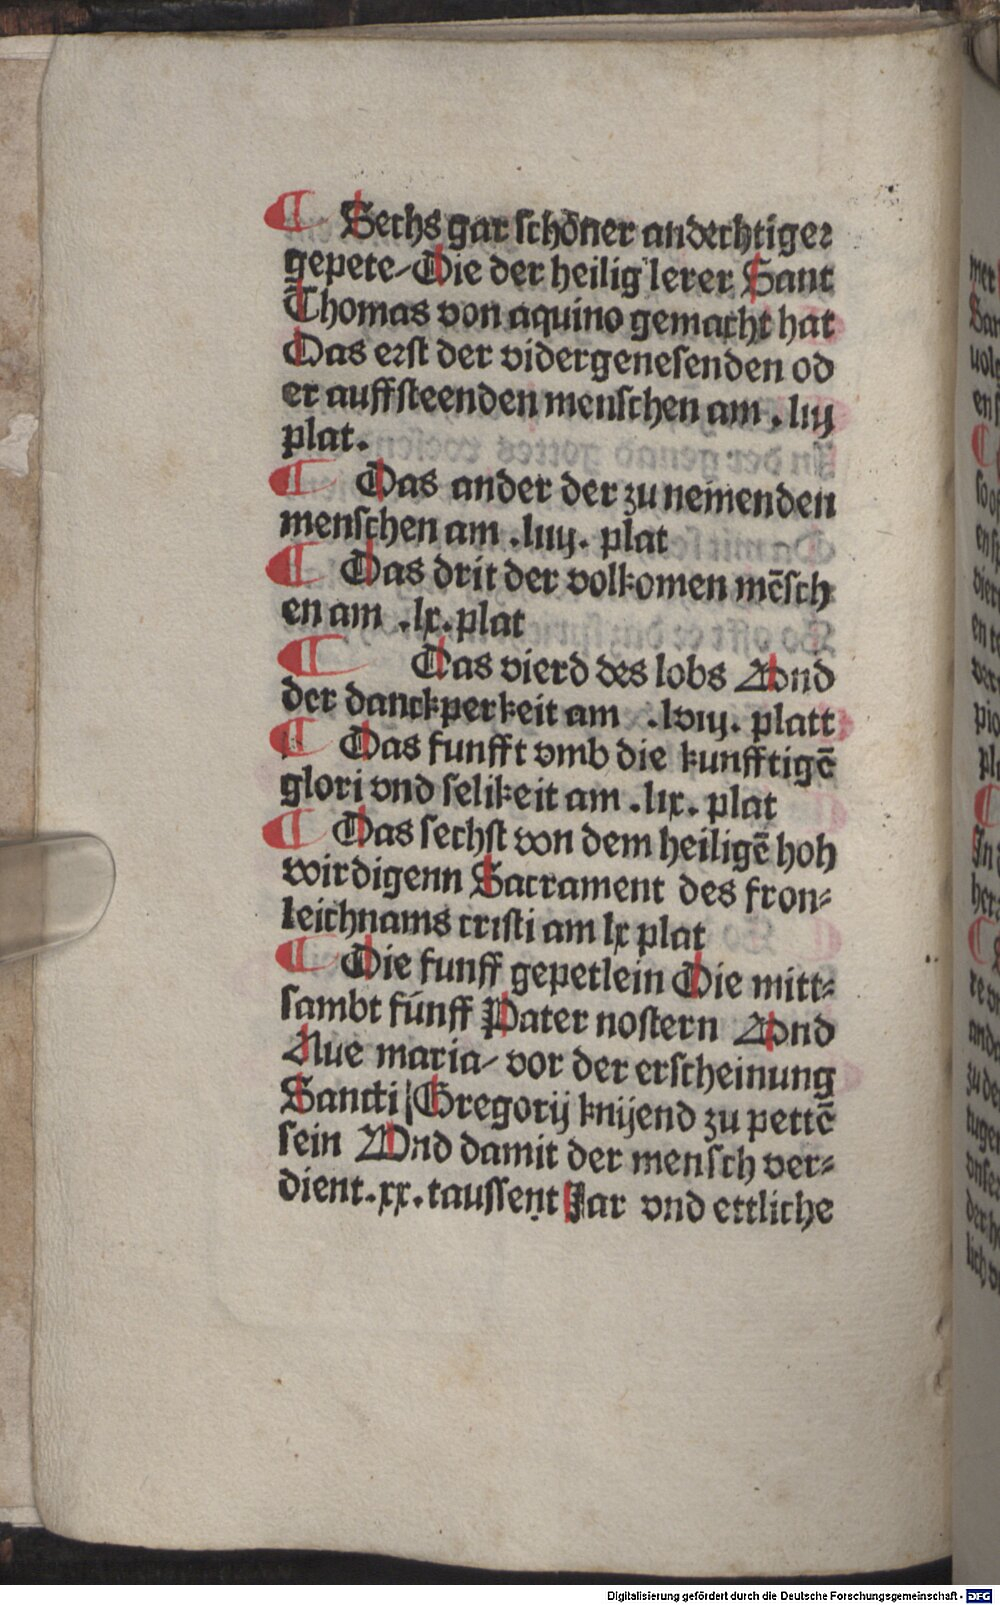 ¶ Sechs gar schöner andechtiger
gepete/ Die der heilig lerer Sant
Thomas von aquino gemacht hat
Das erst der vidergenesenden od
er auffsteenden menschen am . lvij
plat.
¶ Das ander der zu nemenden
menschen am .lviij. plat
¶ Das drit der volkomen mēsch
en am .lx. plat
¶ Das vierd des lobs Vnd
der danckperkeit am .lviij. platt
¶ Das funfft vmb die kunfftigē
glori vnd selikeit am .lix. plat
¶ Das sechst von dem heiligē hoh
wirdigenn Sacrament des fron⸗
leichnams cristi am lx plat
¶ Die funff gepetlein Die mitt⸗
sambt fúnff Pater nostern Vnd
Aue maria/ vor der erscheinung
Sancti Gregorij knijend zu pettē
sein Vnd damit der mensch ver⸗
dient .xx. taussent Jar vnd ettliche
Digitalisierung gefördert durch die Deutsche Forschungsgemeinschaft - DFG